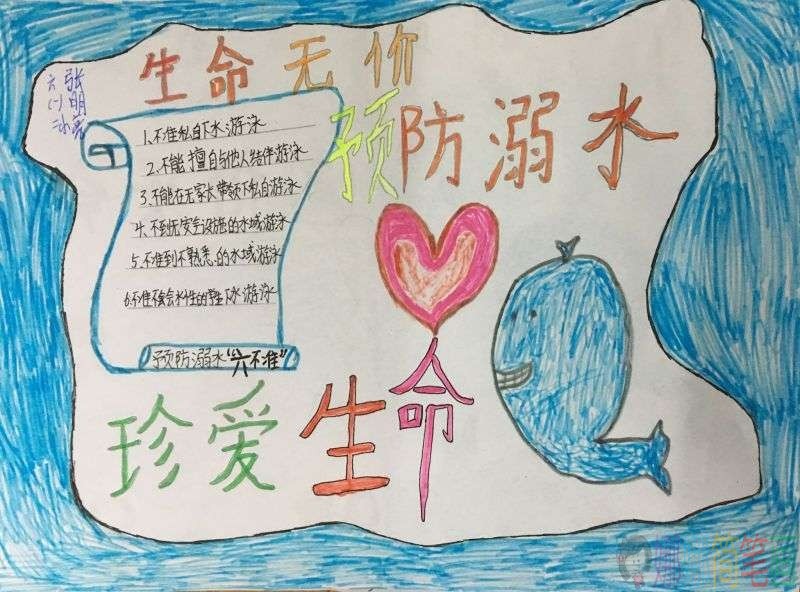 生命无价
六(一)
张明
预防溺水
1、不准私自下水游泳
2、不能擅自与他人结伴游泳
3、不能在无家长带领下私自游泳
4、不到无安全设施的水域游泳
5、不准到不熟悉的水域游泳
6、不准不会水性的学生下水游泳
预防溺水“六不准”
珍爱生命